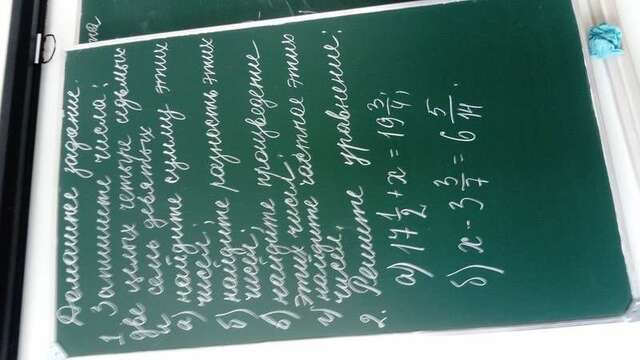 Домашнее задание.
1. Запишите числа:
две целых четыре седьмых
и семь девятых
а) найдите сумму этих
чисел;
б) найдите разность этих
чисел;
в) найдите произведение
этих чисел;
г) найдите частное этих
чисел;
2. Решите уравнение:
а) 17 1/2 + x = 19 3/4;
б) x - 3 3/7 = 6 5/14.